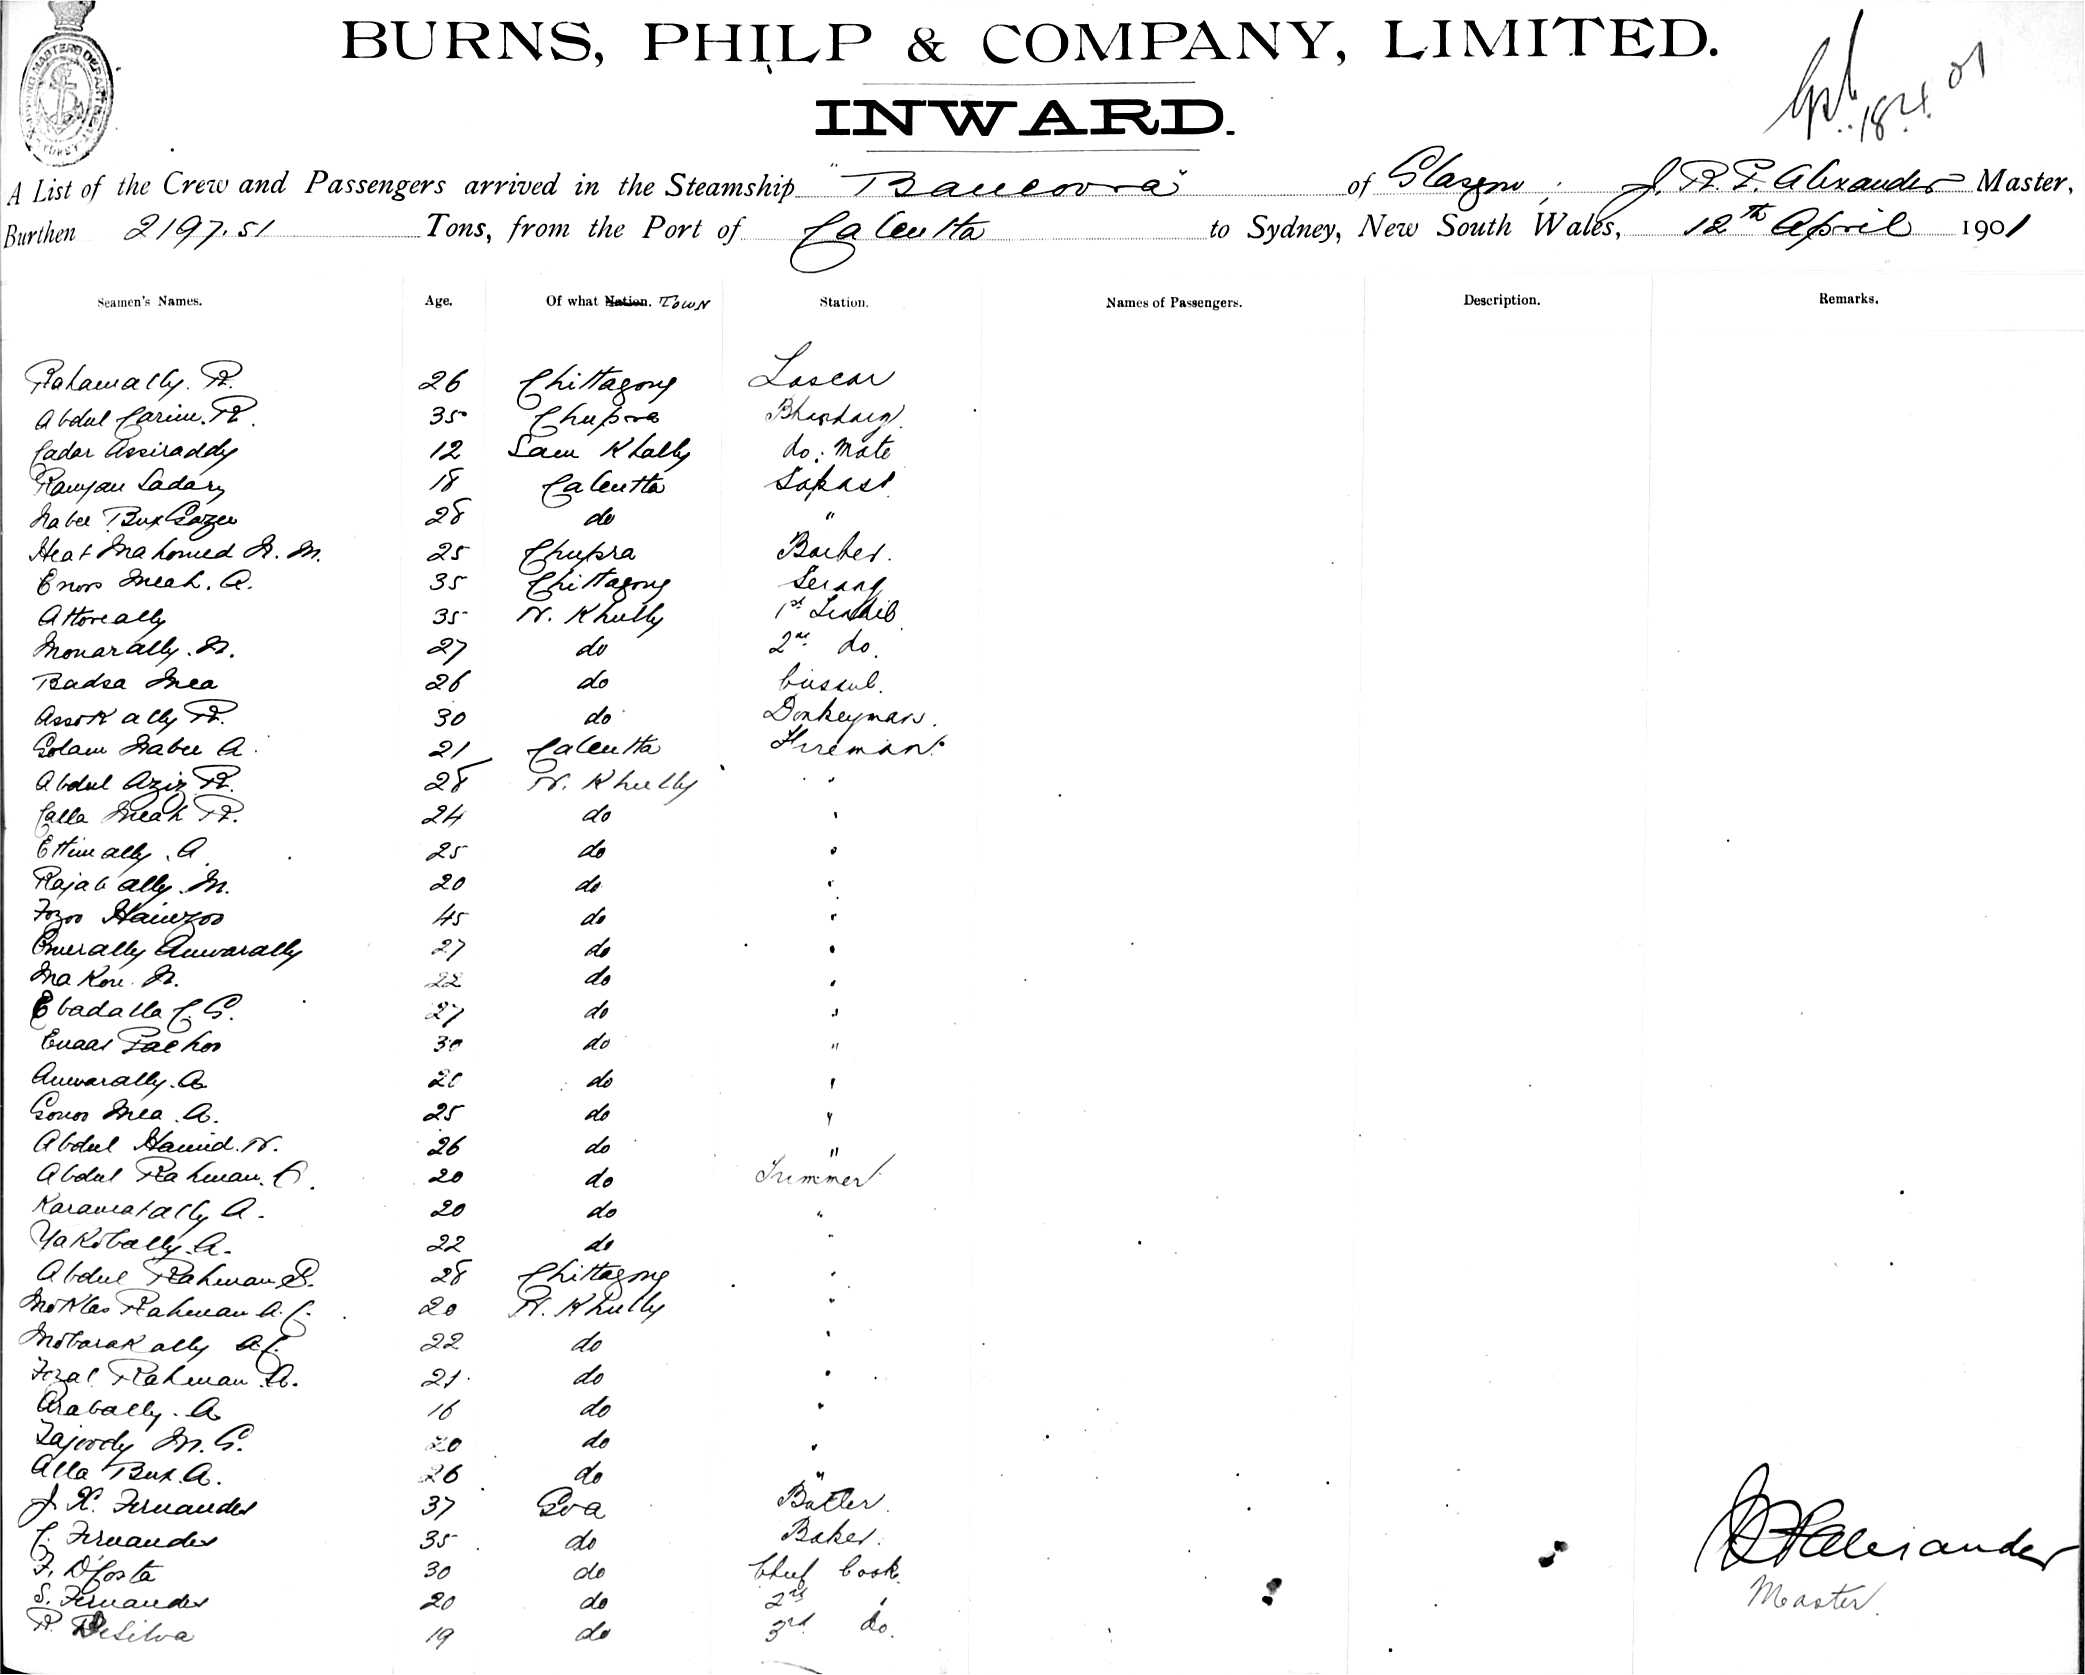 BURNS, PHILP & COMPANY, LIMITED.
INWARD.
18.4.01
A List of the Crew and Passengers arrived in the Steamship "Bancoora" of Glasgow, J. R. F. Alexander Master,
Burthen 2197.51 Tons, from the Port of Calcutta to Sydney, New South Wales, 12th April 1901
Seamen's Names. Age. Of what Nation. Town Station. Names of Passengers. Description. Remarks.
Rahamally. R. 26 Chittagong Lascar
Abdul Carim. R. 35 Chupra Bhandary
Cadar Assiraddy 12 Sam Khally do. Mate
Ramjan Sadary 18 Calcutta Topass
Nabee Bux Gazee 28 do "
Heat Mahomed N. M. 25 Chupra Barber.
Enoo Meah. A. 35 Chittagong Serang
Attoreally 35 N. Khully 1st Tindil
Monarally. N. 27 do 2nd do.
Badsa Mea 26 do Cussul.
Assok ally R. 30 do Donkeyman.
Golam Nabee A. 21 Calcutta Fireman.
Abdul Aziz R. 28 N. Khully "
Calla Meah R. 24 do "
Etimally. A 25 do "
Rajab ally. M. 20 do "
Fozoo Hamzoo 45 do "
Omerally Anwarally 27 do "
Makou. N. 22 do "
Ebadalla C. G. 27 do "
Pachoo 30 do "
Anwarally. A 20 do "
Gonoo Mea. A. 25 do "
Abdul Hamid. N. 26 do "
Abdul Rahman. C. 20 do Trimmer
Karamatally A. 20 do "
Yakobally. A. 22 do "
Abdul Rahman S. 28 Chittagong "
Moklas Rahman A. C. 20 N. Khully "
Mobarak ally A. C. 22 do "
Fozal Rahman A. 21 do "
Arabally. A 16 do "
Tajoody M. G. 20 do "
Alla Bux. A. 26 do "
J. X. Fernandes 37 Goa Butler.
C. Fernandes 35 do Baker.
F. D'Costa 30 do Chief Cook.
S. Fernandes 20 do 2nd "
R. DeSilva 19 do 3rd do.
J R F Alexander
Master.